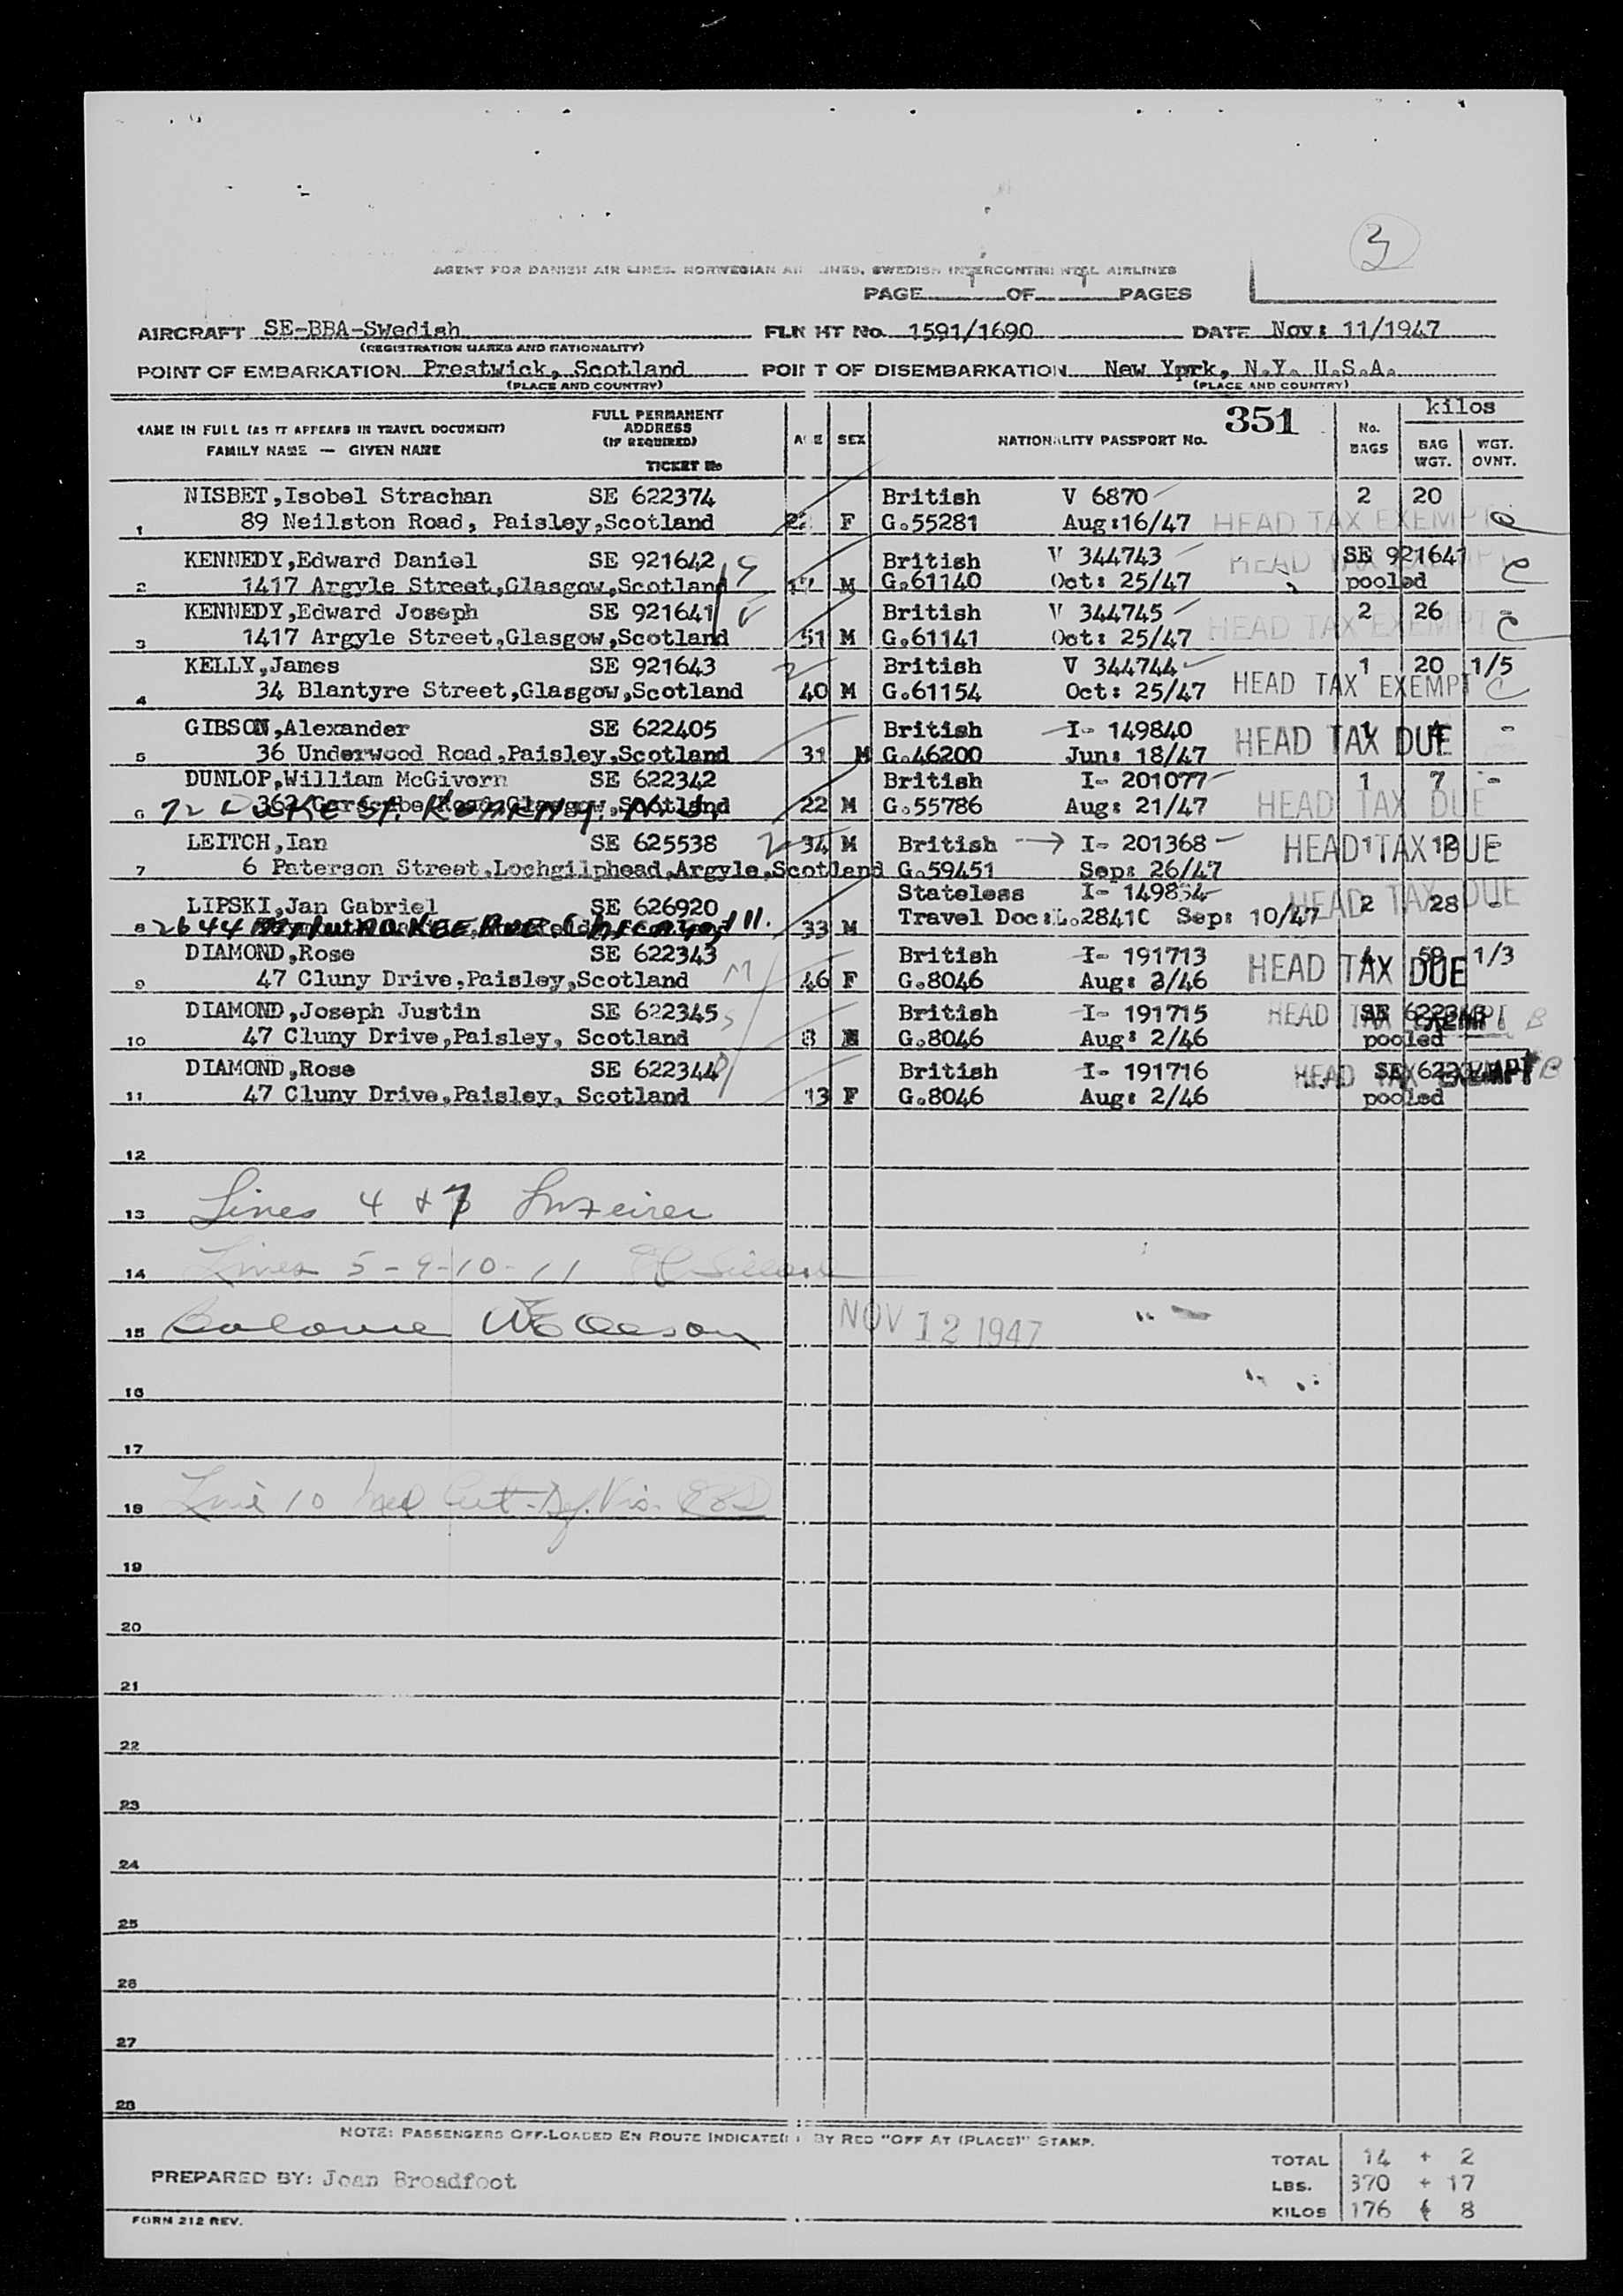 3
AGENT FOR DANISH AIR LINES, NORWEGIAN AIR LINES, SWEDISH INTERCONTINENTAL AIRLINES
PAGE 1 OF 1 PAGES
AIRCRAFT SE-BBA-Swedish FLIGHT No. 1591/1690 DATE Nov: 11/1947
(REGISTRATION MARKS AND NATIONALITY)
POINT OF EMBARKATION Prestwick, Scotland POINT OF DISEMBARKATION New Yprk, N.Y. U.S.A.
(PLACE AND COUNTRY) (PLACE AND COUNTRY)
NAME IN FULL (AS IT APPEARS IN TRAVEL DOCUMENT) FULL PERMANENT ADDRESS (IF REQUIRED) AGE SEX NATIONALITY PASSPORT No. 351 No. BAGS kilos
FAMILY NAME — GIVEN NAME TICKET No BAG WGT. WGT. OVNT.
NISBET,Isobel Strachan SE 622374 British V 6870 2 20
1 89 Neilston Road, Paisley,Scotland F G.55281 Aug:16/47 HEAD TAX EXEMPT
KENNEDY,Edward Daniel SE 921642 British V 344743 HEAD TAX EXEMPT SE 921641
2 1417 Argyle Street,Glasgow,Scotland M G.61140 Oct: 25/47 pooled
KENNEDY,Edward Joseph SE 921641 British V 344745 2 26 -
3 1417 Argyle Street,Glasgow,Scotland 51 M G.61141 Oct: 25/47 HEAD TAX EXEMPT
KELLY,James SE 921643 British V 344744 1 20 1/5
4 34 Blantyre Street,Glasgow,Scotland 40 M G.61154 Oct: 25/47 HEAD TAX EXEMPT
GIBSON,Alexander SE 622405 British I- 149840 1 4 -
5 36 Underwood Road,Paisley,Scotland 31 M G.46200 Jun: 18/47 HEAD TAX DUE
DUNLOP,William McGivern SE 622342 British I- 201077 1 7 -
6 Glasgow,Scotland 22 M G.55786 Aug: 21/47 HEAD TAX DUE
LEITCH,Ian SE 625538 34 M British I- 201368 HEAD TAX DUE 1 12 -
7 6 Paterson Street,Lochgilphead,Argyle,Scotland G.59451 Sep: 26/47
LIPSKI,Jan Gabriel SE 626920 Stateless I- 149834 HEAD TAX DUE 2 28 -
8 2644 Ave. Chicago, Ill. 33 M Travel Doc:L.28410 Sep: 10/47
DIAMOND,Rose SE 622343 British I- 191713 4 59 1/3
9 47 Cluny Drive,Paisley,Scotland 46 F G.8046 Aug: 2/46 HEAD TAX DUE
DIAMOND,Joseph Justin SE 622345 British I- 191715 HEAD TAX EXEMPT SE 622343
10 47 Cluny Drive,Paisley, Scotland 8 M G.8046 Aug: 2/46 pooled
DIAMOND,Rose SE 622344 British I- 191716 HEAD TAX EXEMPT
11 47 Cluny Drive,Paisley, Scotland 13 F G.8046 Aug: 2/46 pooled
12
13 Lines 4 & 7
14 Lines 5 - 9-10-11
15 Balance NOV 12 1947
16
17
18 Line 10 Med Cert.
19
20
21
22
23
24
25
26
27
28
NOTE: PASSENGERS OFF-LOADED EN ROUTE INDICATED BY RED "OFF AT (PLACE)" STAMP.
TOTAL 14 + 2
PREPARED BY: Joan Broadfoot LBS. 370 + 17
KILOS 176 & 8
FORM 212 REV.